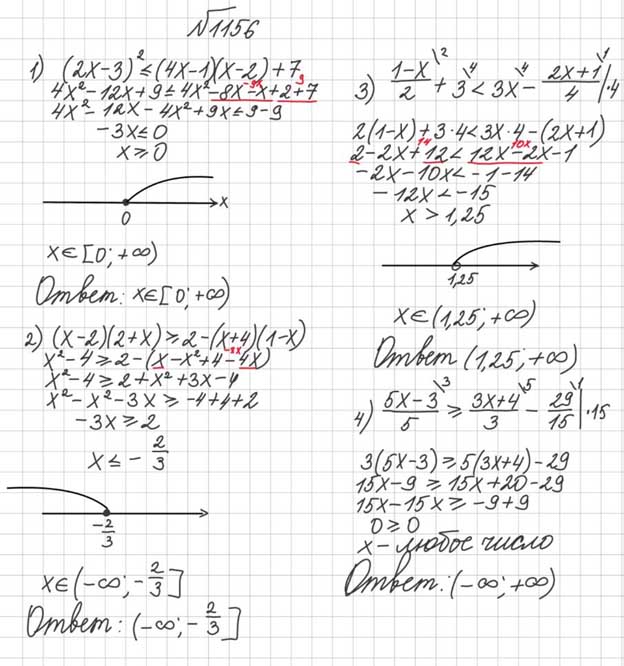 √1156
1) (2x-3)² ≤ (4x-1)(x-2)+7
4x²-12x+9 ≤ 4x²-8x-x+2+7
-9x 9
4x²-12x-4x²+9x ≤ 9-9
-3x ≤ 0
x ≥ 0
0 x
x∈[0;+∞)
Ответ: x∈[0;+∞)
2) (x-2)(2+x) ≥ 2-(x+4)(1-x)
x²-4 ≥ 2-(x-x²+4-4x)
-3x
x²-4 ≥ 2+x²+3x-4
x²-x²-3x ≥ -4+4+2
-3x ≥ 2
x ≤ -2/3
-2/3
x∈(-∞;-2/3]
Ответ: (-∞;-2/3]
3) (1-x)/2 \2 + 3 \4 < 3x \4 - (2x+1)/4 \1 |·4
2(1-x)+3·4 < 3x·4-(2x+1)
14 10x
2-2x+12 < 12x-2x-1
-2x-10x < -1-14
-12x < -15
x > 1,25
1,25
x∈(1,25;+∞)
Ответ (1,25;+∞)
4) (5x-3)/5 \3 ≥ (3x+4)/3 \5 - 29/15 \1 |·15
3(5x-3) ≥ 5(3x+4)-29
15x-9 ≥ 15x+20-29
15x-15x ≥ -9+9
0 ≥ 0
x-любое число
Ответ: (-∞;+∞)